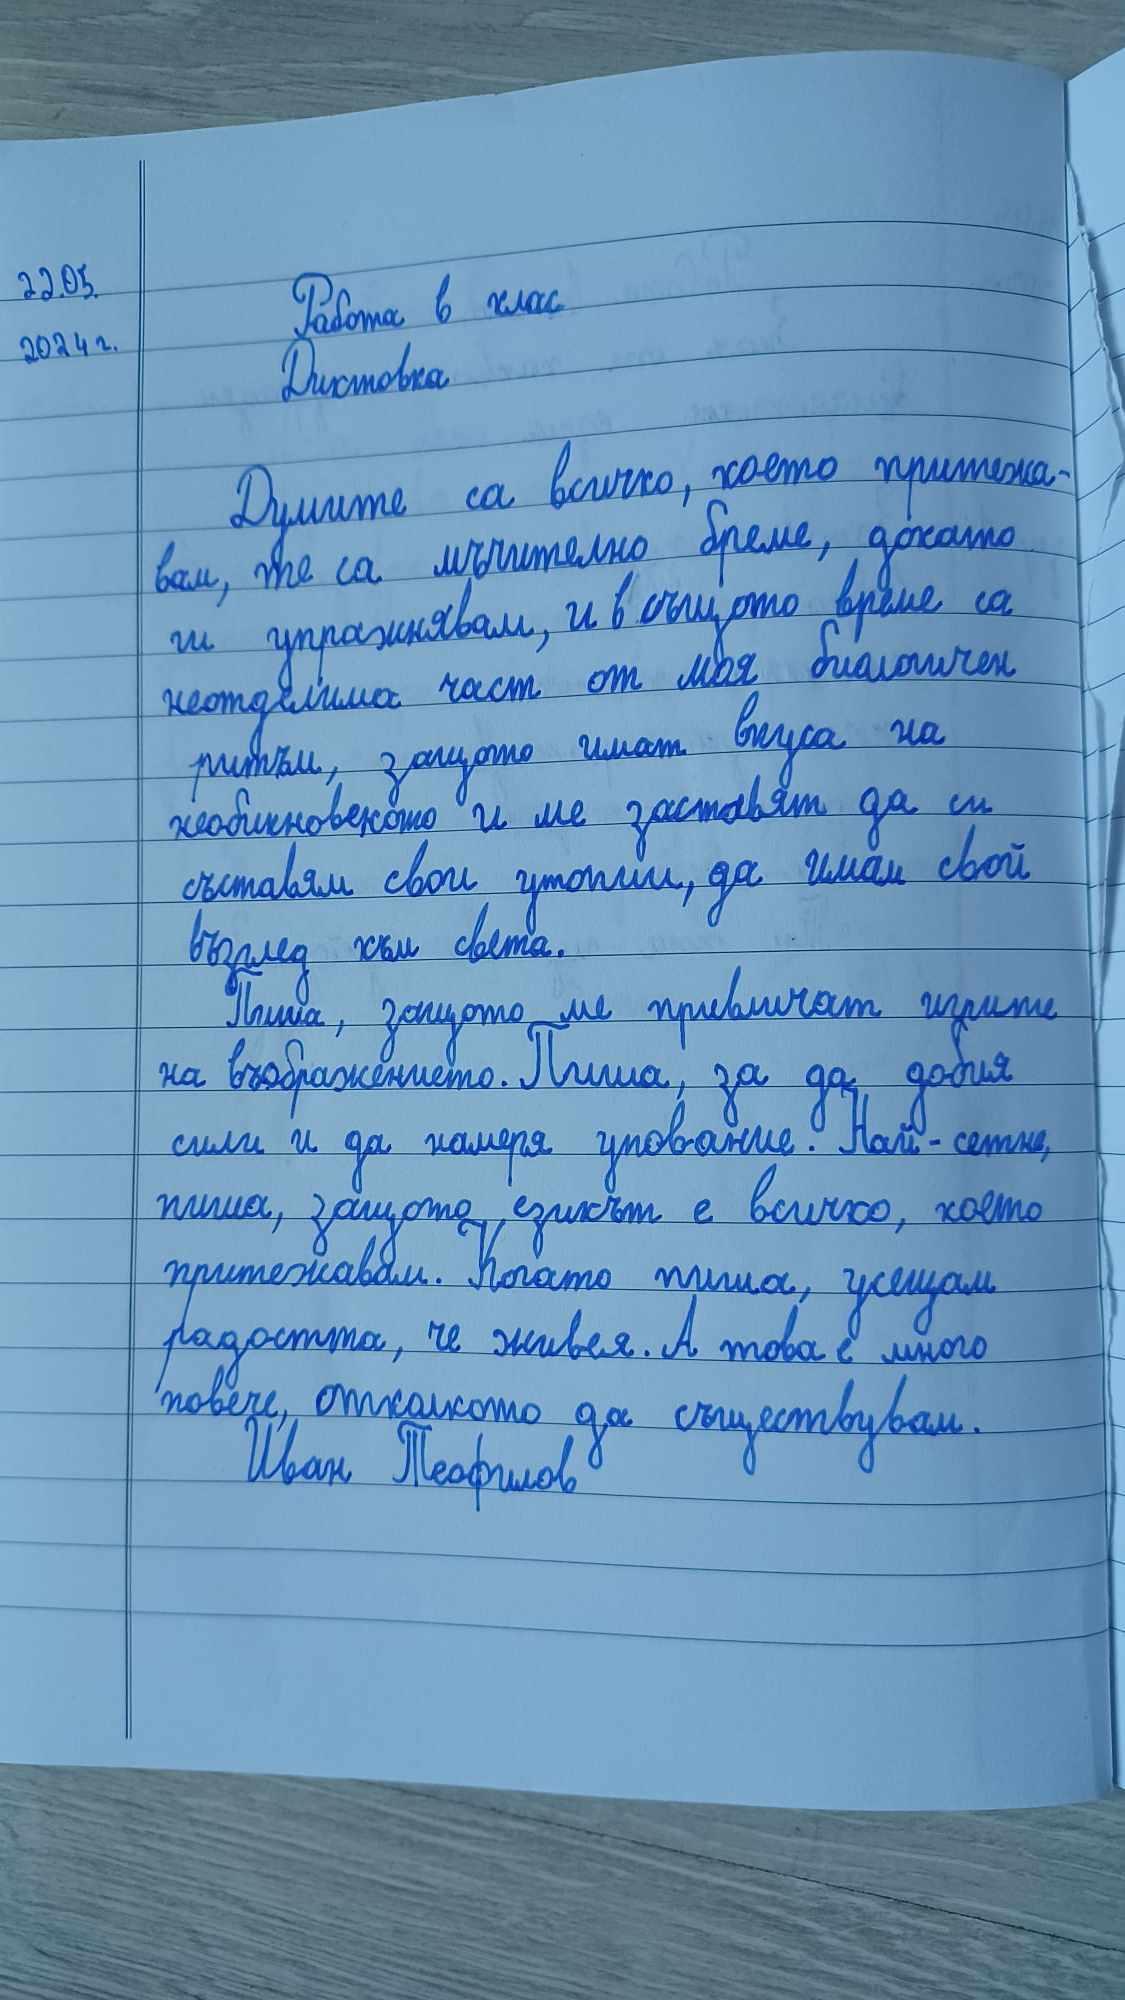 22.05.
2024 г.
Работа в клас
Диктовка
Думите са всичко, което притежа-
вам, те са мъчително бреме, докато
ги упражнявам, и в същото време са
неотделима част от моя биологичен
ритъм, защото имат вкуса на
необикновеното и ме заставят да си
съставям свои утопии, да имам свой
възглед към света.
Пиша, защото ме привличат игрите
на въображението. Пиша, за да добия
сили и да намеря упование. Най-сетне,
пиша, защото езикът е всичко, което
притежавам. Когато пиша, усещам
радостта, че живея. А това е много
повече, отколкото да съществувам.
Иван Теофилов